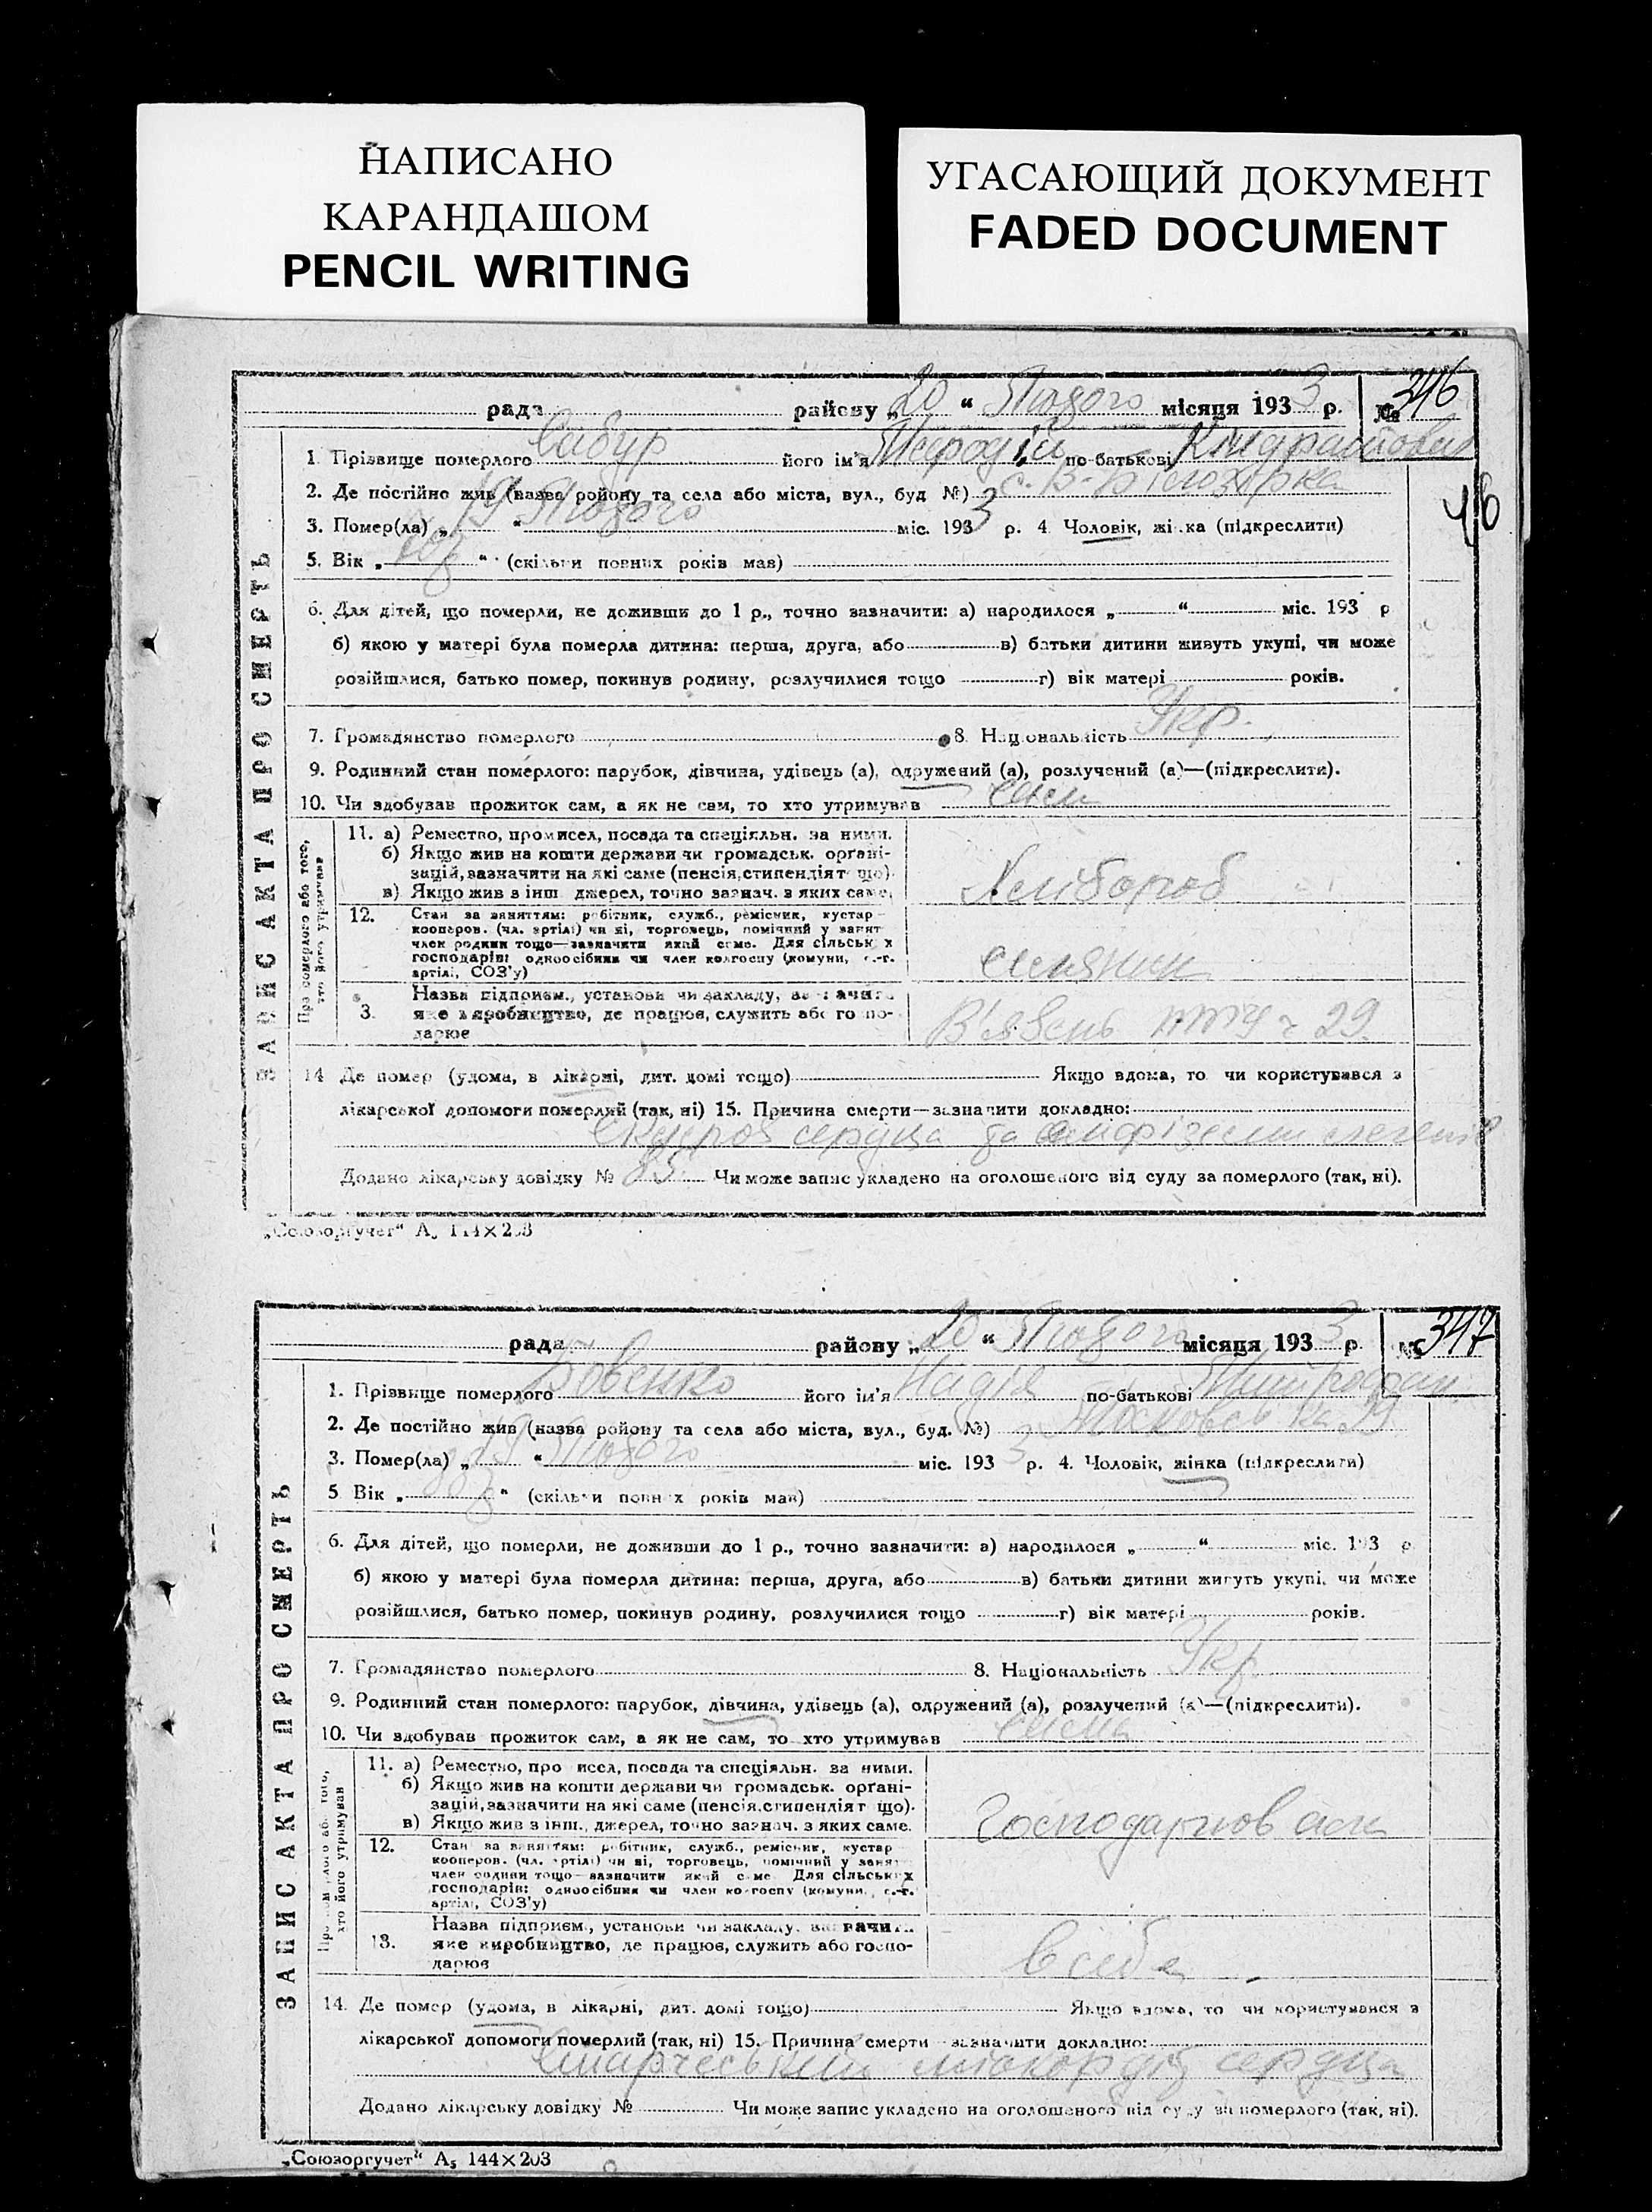 НАПИСАНО
КАРАНДАШОМ
PENCIL WRITING
УГАСАЮЩИЙ ДОКУМЕНТ
FADED DOCUMENT
ЗАПИС АКТА ПРО СМЕРТЬ
рада району „20“ Лютого місяця 1933 р. № 346
1. Прізвище померлого Сабур його ім'я по-батькові Кіндратович
2. Де постійно жив (назва ройону та села або міста, вул., буд №) с. В-Білозірка
46
3. Помер(ла) „19“ Лютого міс. 1933 р. 4. Чоловік, жінка (підкреслити)
5. Вік „ “ (скільки повних років мав)
6. Для дітей, що померли, не доживши до 1 р., точно зазначити: а) народилося „ “ міс. 193 р
б) якою у матері була померла дитина: перша, друга, або в) батьки дитини живуть укупі, чи може
розійшлися, батько помер, покинув родину, розлучилися тощо г) вік матері років.
7. Громадянство померлого 8. Національність Укр.
9. Родинний стан померлого: парубок, дівчина, удівець (а), одружений (а), розлучений (а)—(підкреслити).
10. Чи здобував прожиток сам, а як не сам, то хто утримував сам
Про померлого або того, хто його утримував
11. а) Ремество, промисел, посада та спеціяльн. за ними.
б) Якщо жив на кошти держави чи громадськ. органі-
зацій, зазначити на які саме (пенсія, стипендія т що).
в) Якщо жив з інш. джерел, точно зазнач. з яких саме.
Хлібороб
12. Стан за заняттям: робітник, служб., ремісник, кустар
кооперов. (чл. артілі) чи ні, торговець, помічний у занят
член родини тощо—зазначити який саме. Для сільських
господарів: одноосібник чи член колгоспу (комуни, с.-г.
артілі, СОЗ'у)
селянин
3. Назва підприєм., установи чи закладу, зазначити
яке виробництво, де працює, служить або госпо-
дарює
В'язень 29.
14 Де помер (удома, в лікарні, дит. домі тощо) Якщо вдома, то чи користувався з
лікарської допомоги померлий (так, ні) 15. Причина смерти—зазначити докладно:
серця та легенів
Додано лікарську довідку № 85 Чи може запис укладено на оголошеного від суду за померлого (так, ні).
„Союзоргучет“ А₅ 144×203
ЗАПИС АКТА ПРО СМЕРТЬ
рада району „20“ Лютого місяця 1933 р. № 347
1. Прізвище померлого Бовенко його ім'я Надія по-батькові
2. Де постійно жив (назва ройону та села або міста, вул., буд. №) Московська 29
3. Помер(ла) „19“ Лютого міс. 1933 р. 4. Чоловік, жінка (підкреслити)
5 Вік „ “ (скільки повних років мав)
6. Для дітей, що померли, не доживши до 1 р., точно зазначити: а) народилося „ “ міс. 193 р
б) якою у матері була померла дитина: перша, друга, або в) батьки дитини живуть укупі, чи може
розійшлися, батько помер, покинув родину, розлучилися тощо г) вік матері років.
7. Громадянство померлого 8. Національність Укр
9. Родинний стан померлого: парубок, дівчина, удівець (а), одружений (а), розлучений (а)—(підкреслити).
10. Чи здобував прожиток сам, а як не сам, то хто утримував сама
Про померлого або того, хто його утримував
11. а) Ремество, промисел, посада та спеціяльн. за ними.
б) Якщо жив на кошти держави чи громадськ. органі-
зацій, зазначити на які саме (пенсія, стипендія т що).
в) Якщо жив з інш., джерел, точно зазнач. з яких саме.
Господарювала
12. Стан за заняттям: робітник, служб., ремісник, кустар
кооперов. (чл. артілі) чи ні, торговець, помічний у занят
член родини тощо—зазначити який саме Для сільських
господарів: одноосібник чи член колгоспу (комуни, с.-г.
артілі, СОЗ'у)
13. Назва підприєм., установи чи закладу, зазначити
яке виробництво, де працює, служить або госпо-
дарює
в себе
14. Де помер (удома, в лікарні, дит. домі тощо) Якщо вдома, то чи користувався з
лікарської допомоги померлий (так, ні) 15. Причина смерти—зазначити докладно:
серця
Додано лікарську довідку № Чи може запис укладено на оголошеного від суду за померлого (так, ні).
„Союзоргучет“ А₅ 144×203